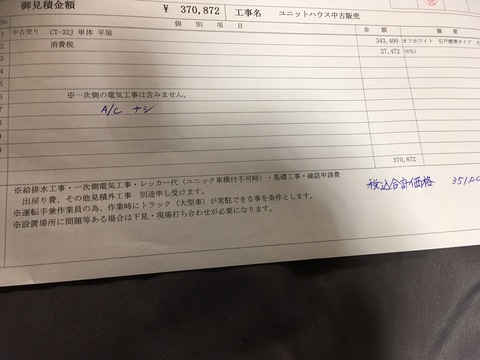 御見積金額 ¥ 370,872 工事名 ユニットハウス中古販売
No 個別項目 金額 摘要
1 中古売り CT-32J 単体 平屋 343,400 オフホワイト 引戸標準タイプ
2 消費税 27,472 (8%)
3
※一次側の電気工事は含みません。
A/C ナシ
370,872
※給排水工事・一次側電気工事・レッカー代（ユニック車横付不可時）・基礎工事・確認申請費
出戻り費、その他見積外工事 別途申し受けます。
※運転手兼作業員の為、作業時にトラック（大型車）が常駐できる事を条件とします。
※設置場所に問題等ある場合は下見・現場打ち合わせが必要になります。
税込合計価格 351,00